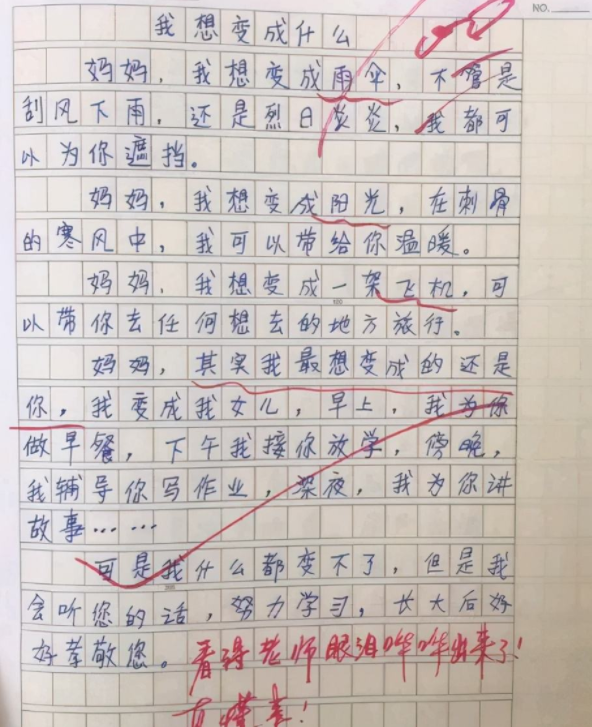 NO.
我想变成什么
妈妈，我想变成雨伞，不管是
刮风下雨，还是烈日炎炎，我都可
以为你遮挡。
妈妈，我想变成阳光，在刺骨
的寒风中，我可以带给你温暖。
妈妈，我想变成一架飞机，可
以带你去任何想去的地方旅行。
妈妈，其实我最想变成的还是
你，我变成我女儿，早上，我为你
做早餐，下午我接你放学，傍晚，
我辅导你写作业，深夜，我为你讲
故事……
可是我什么都变不了，但是我
会听您的话，努力学习，长大后好
好孝敬您。看得老师眼泪哗哗出来了！